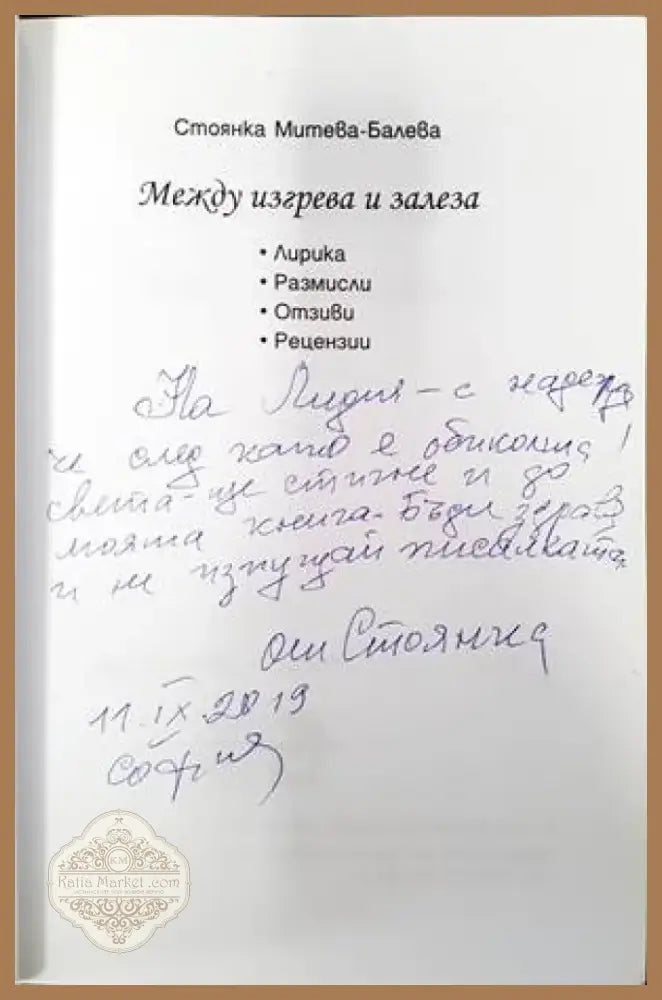 Стоянка Митева-Балева
Между изгрева и залеза
• Лирика
• Размисли
• Отзиви
• Рецензии
На Лидия – с надежда
че след като е обиколила
света – ще стигне и до
моята книга. Бъди здрав
и не изпущай писалката
от Стоянка
11.IX.2019
София
KM
Katia Market.com